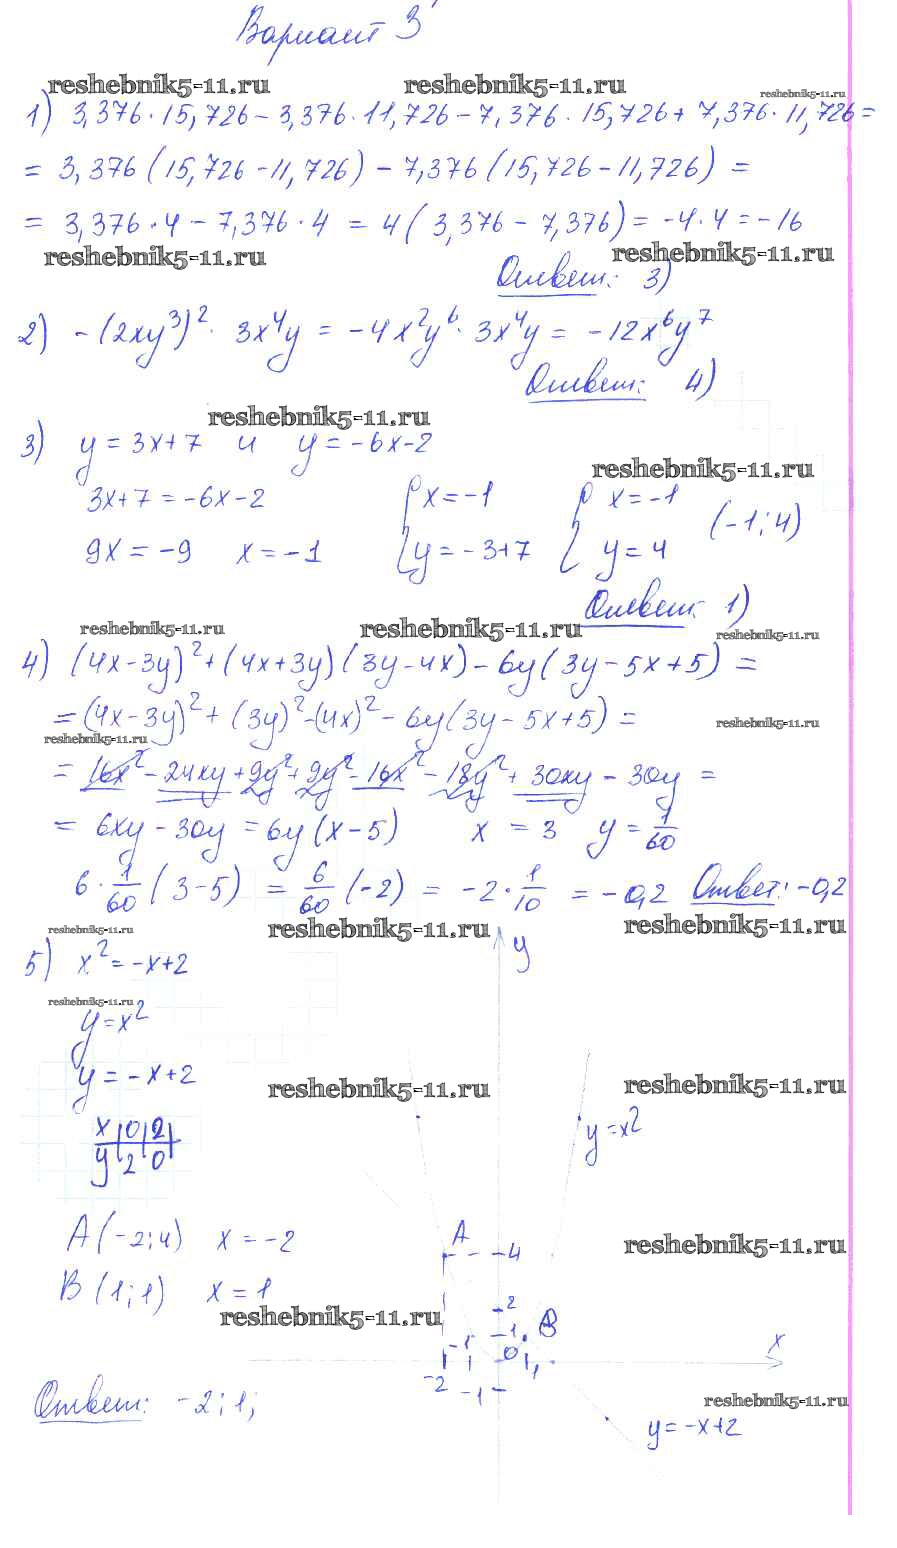 Вариант 3
reshebnik5-11.ru reshebnik5-11.ru reshebnik5-11.ru
1) 3,376·15,726 - 3,376·11,726 - 7,376·15,726 + 7,376·11,726 =
= 3,376(15,726 - 11,726) - 7,376(15,726 - 11,726) =
= 3,376·4 - 7,376·4 = 4(3,376 - 7,376) = -4·4 = -16
reshebnik5-11.ru reshebnik5-11.ru
Ответ: 3)
2) -(2xy³)²·3x⁴y = -4x²y⁶·3x⁴y = -12x⁶y⁷
Ответ: 4)
reshebnik5-11.ru
3) y = 3x+7 и y = -6x-2
reshebnik5-11.ru
3x+7 = -6x-2 { x = -1 { x = -1 (-1; 4)
9x = -9 x = -1 y = -3+7 y = 4
Ответ: 1)
reshebnik5-11.ru reshebnik5-11.ru reshebnik5-11.ru
4) (4x-3y)² + (4x+3y)(3y-4x) - 6y(3y-5x+5) =
= (4x-3y)² + (3y)² - (4x)² - 6y(3y-5x+5) =
reshebnik5-11.ru reshebnik5-11.ru
= 16x² - 24xy + 9y² + 9y² - 16x² - 18y² + 30xy - 30y =
= 6xy - 30y = 6y(x-5) x = 3 y = 1/60
6·1/60(3-5) = 6/60(-2) = -2·1/10 = -0,2 Ответ: -0,2
reshebnik5-11.ru reshebnik5-11.ru reshebnik5-11.ru
5) x² = -x+2
y
reshebnik5-11.ru
y = x²
y = -x+2
reshebnik5-11.ru reshebnik5-11.ru
x 0 2
y 2 0
y = x²
A(-2; 4) x = -2
A
4
reshebnik5-11.ru
B(1; 1) x = 1
reshebnik5-11.ru
2
-1 1 B
0 1 x
-2 -1
Ответ: -2; 1;
reshebnik5-11.ru
y = -x+2